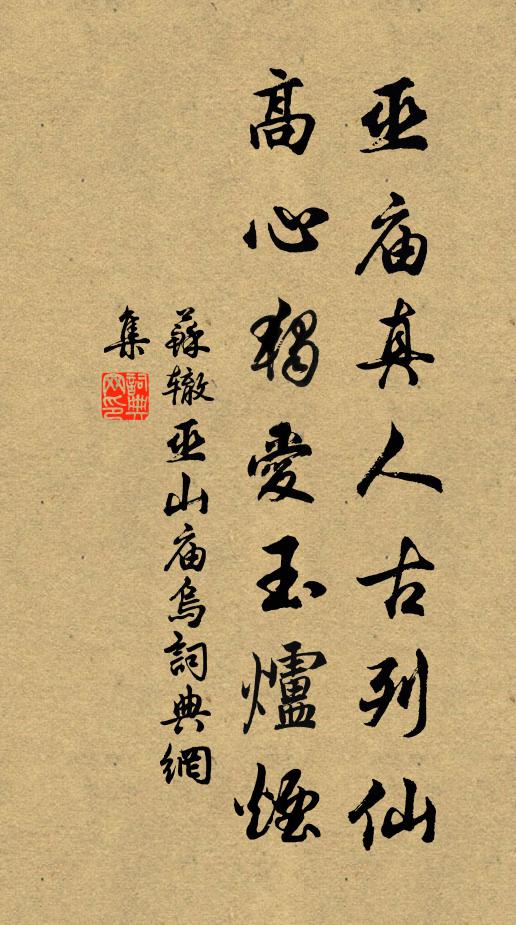 巫庙真人古列仙
高心獨愛玉爐煙
蘇辙巫山庙烏詞典網
集
詞典
网印